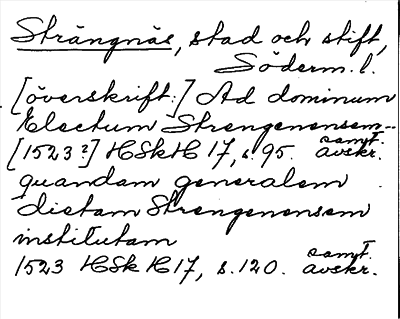 Strängnäs, stad och stift,
Söderm. l.
[överskrift:] Ad dominum
Electum Strengenensem--
[1523?] HSkH 17, s. 95. samt. avskr.
quandam generalem
dietam Strengenensem
institutam
1523 HSk H17, s. 120. samt. avskr.